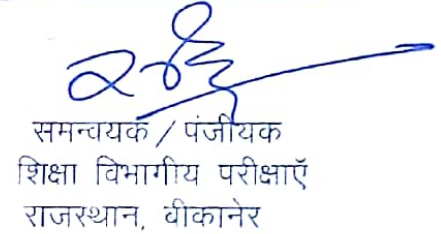 समन्वयक / पंजीयक
शिक्षा विभागीय परीक्षाएॅ
राजस्थान, बीकानेर